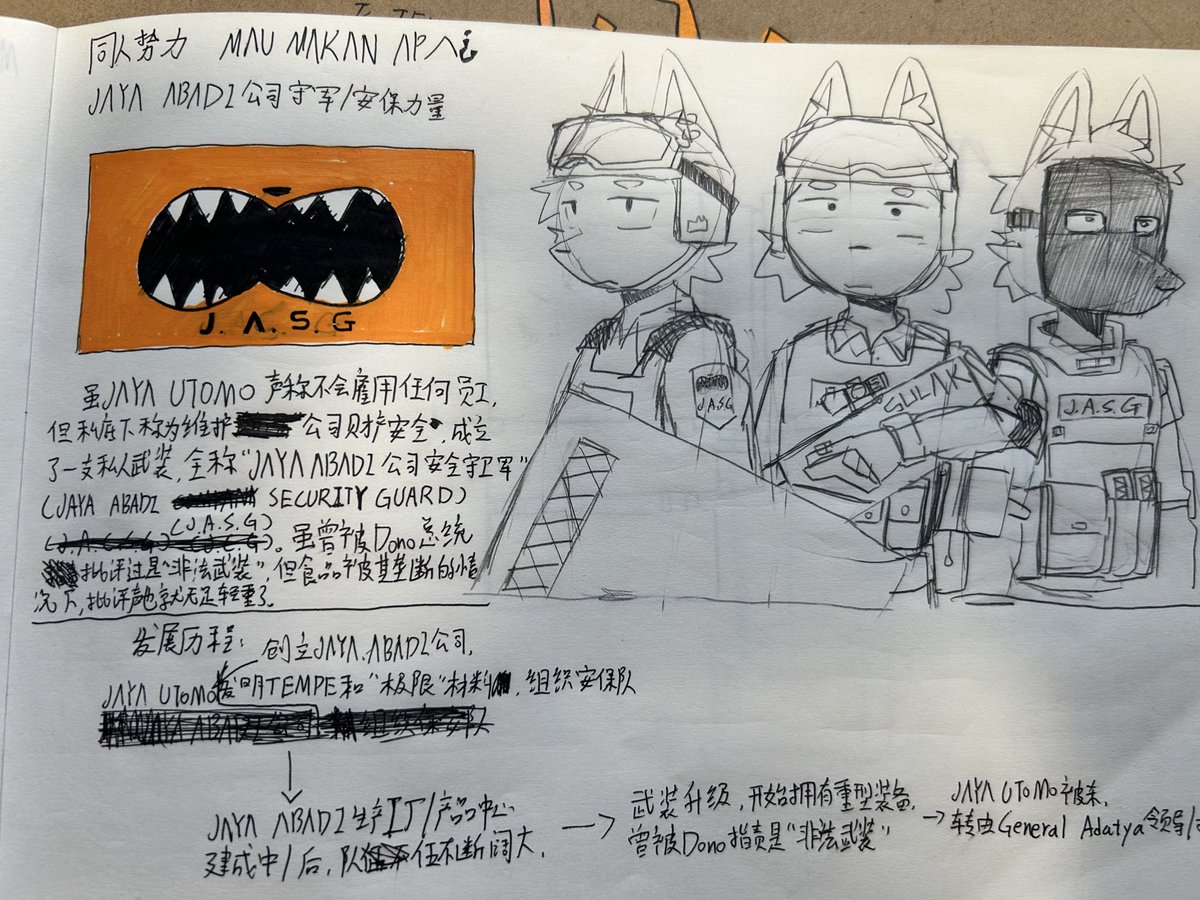 同人势力 MAU MAKAN APA
JAYA ABADI公司守军/安保力量
J.A.S.G
虽JAYA UTOMO 声称不会雇用任何员工,
但私底下称为维护公司财产安全,成立
了一支私人武装,全称“JAYA ABADI公司安全守卫军”
(JAYA ABADI SECURITY GUARD)
(J.A.S.G)
。虽曾被Dono总统
批评过是“非法武装”,但食品被其垄断的情
况下,批评声也就无足轻重了。
发展历程:
创立JAYA.ABADI公司,
JAYA UTOMO发明TEMPE和“极限”材料,组织安保队
JAYA ABADI生产工厂/产品中心
建成中/后,队伍不断阔大,
武装升级,开始拥有重型装备,
曾被Dono指责是“非法武装”
JAYA UTOMO被杀,
转由General Adatya领导/
J.A.S.G
SULAK
J.A.S.G